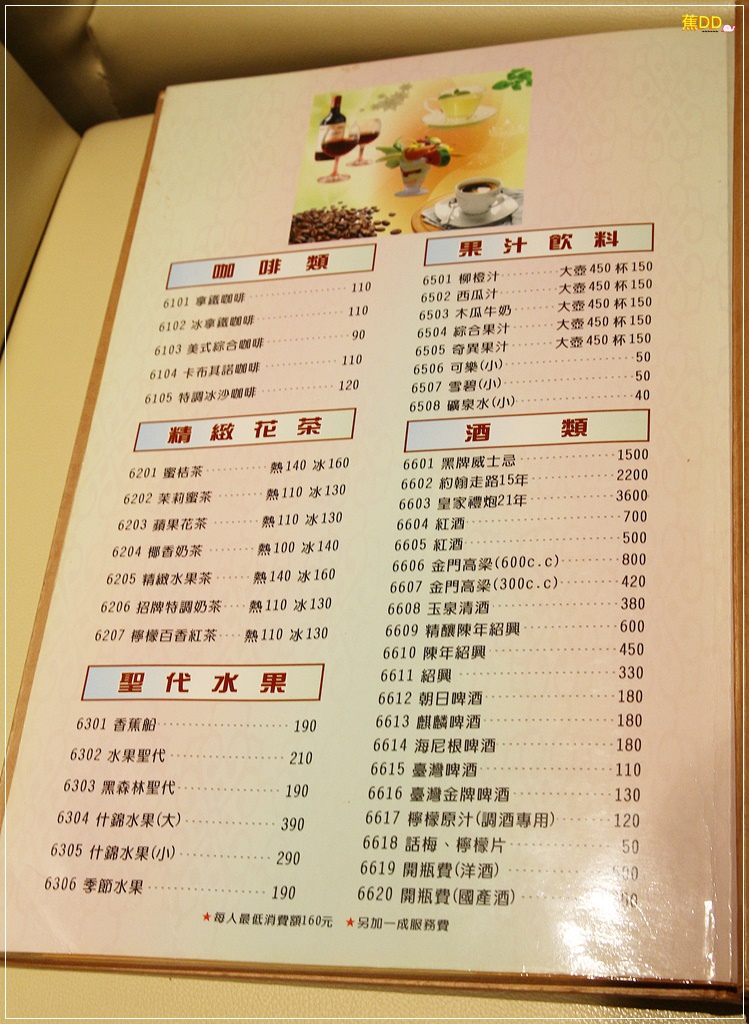 蕉DD
咖啡類
6101 拿鐵咖啡 110
6102 冰拿鐵咖啡 110
6103 美式綜合咖啡 90
6104 卡布其諾咖啡 110
6105 特調冰沙咖啡 120
精緻花茶
6201 蜜桔茶 熱140 冰160
6202 茉莉蜜茶 熱110 冰130
6203 蘋果花茶 熱110 冰130
6204 椰香奶茶 熱100 冰140
6205 精緻水果茶 熱140 冰160
6206 招牌特調奶茶 熱110 冰130
6207 檸檬百香紅茶 熱110 冰130
聖代水果
6301 香蕉船 190
6302 水果聖代 210
6303 黑森林聖代 190
6304 什錦水果(大) 390
6305 什錦水果(小) 290
6306 季節水果 190
果汁飲料
6501 柳橙汁 大壺450 杯150
6502 西瓜汁 大壺450 杯150
6503 木瓜牛奶 大壺450 杯150
6504 綜合果汁 大壺450 杯150
6505 奇異果汁 大壺450 杯150
6506 可樂(小) 50
6507 雪碧(小) 50
6508 礦泉水(小) 40
酒類
6601 黑牌威士忌 1500
6602 約翰走路15年 2200
6603 皇家禮炮21年 3600
6604 紅酒 700
6605 紅酒 500
6606 金門高梁(600c.c) 800
6607 金門高梁(300c.c) 420
6608 玉泉清酒 380
6609 精釀陳年紹興 600
6610 陳年紹興 450
6611 紹興 330
6612 朝日啤酒 180
6613 麒麟啤酒 180
6614 海尼根啤酒 180
6615 臺灣啤酒 110
6616 臺灣金牌啤酒 130
6617 檸檬原汁(調酒專用) 120
6618 話梅、檸檬片 50
6619 開瓶費(洋酒)
6620 開瓶費(國產酒)
★每人最低消費額160元 ★另加一成服務費